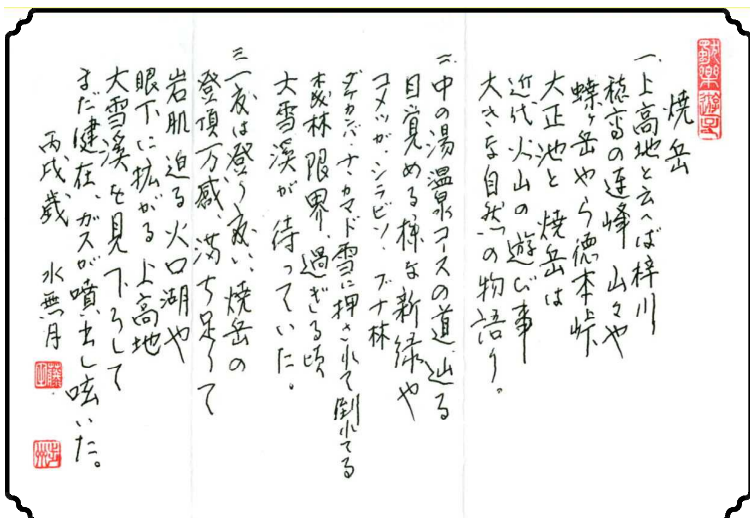 焼岳
一、上高地と云へば梓川
穂高の連峰 山々や
蝶ヶ岳やら徳本峠
大正池と焼岳は
近代火山の遊び事
大きな自然の物語り。
二、中の湯温泉コースの道辿る
目覚める様な新緑や
コメツガ、シラビソ、ブナ林
ダケカンバ、ナナカマド雪に押されて倒れてる
森林限界、過ぎる頃
大雪渓が待っていた。
三、一度は登り度い、焼岳の
登頂万感、満ち足りて
岩肌迫る火口湖や
眼下に拡がる上高地
大雪渓を見下ろして
まだ健在、ガスが噴出し呟いた。
丙戌歳 水無月